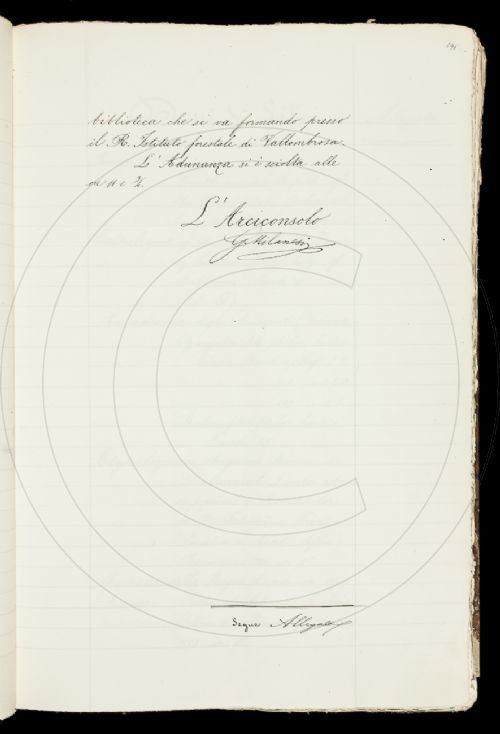 191
biblioteca che si va formando presso
il R. Istituto forestale di Vallombrosa.
L'Adunanza si è sciolta alle
ore 11 e ½.
L'Arciconsolo
G. Milanesi
Segue Allegato